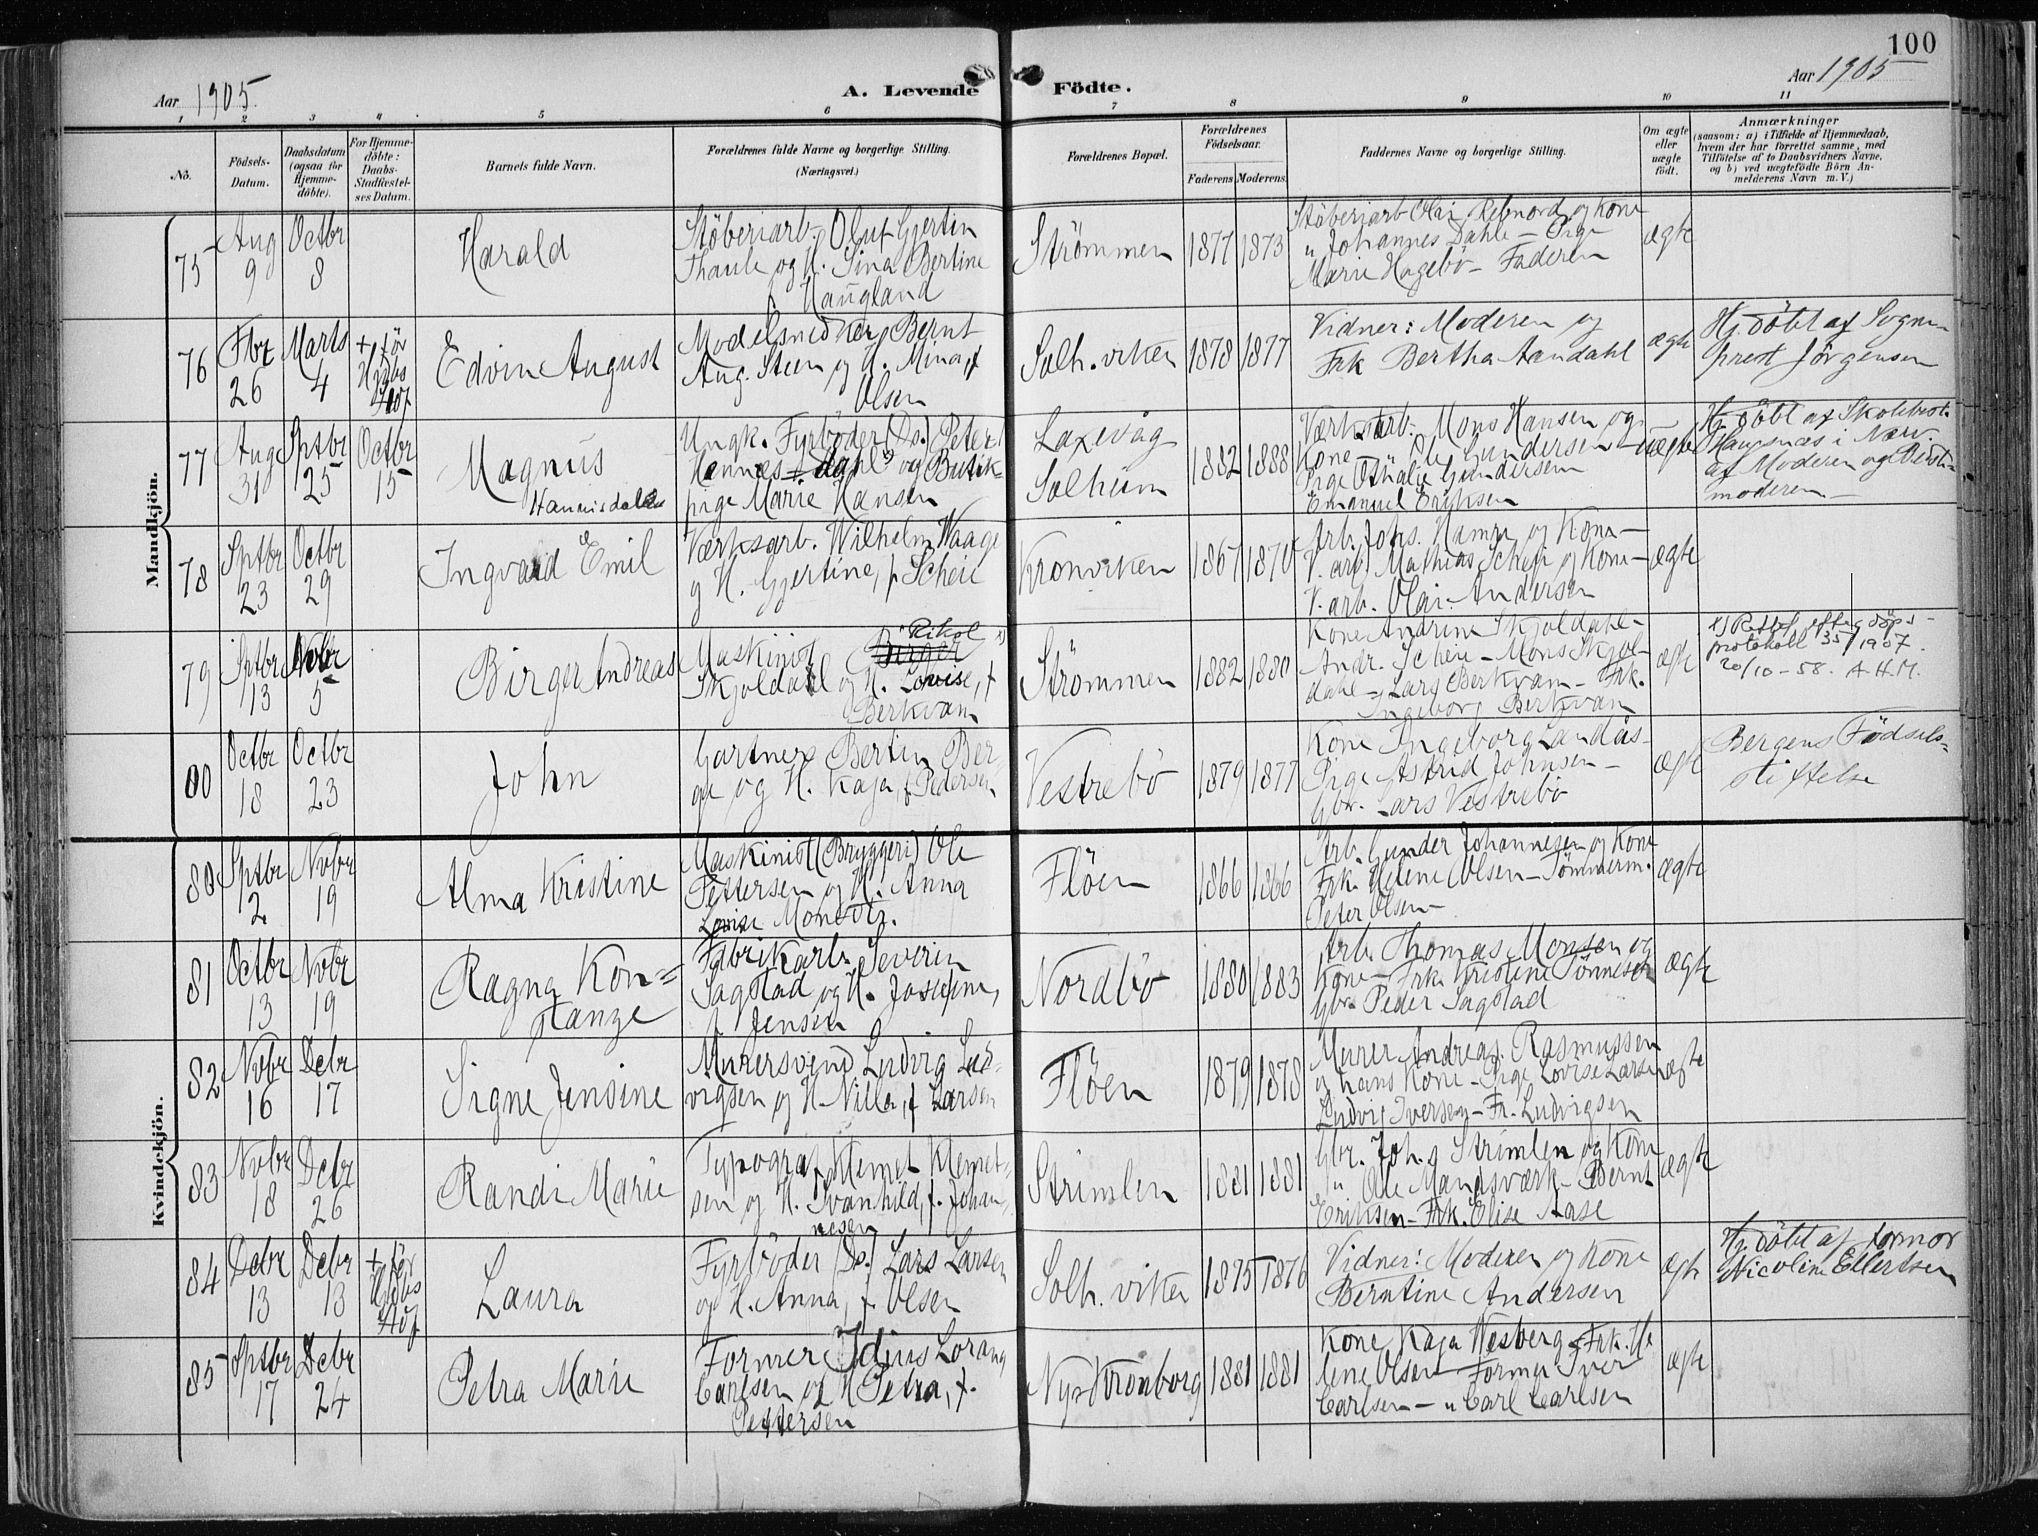 100
Aar 1905.
A. Levende Födte.
Aar 1905
1 2 3 4 5 6 7 8 9 10 11
No.
Födsels-
Datum.
Daabsdatum
(ogsaa for
Hjemme-
döbte).
For Hjemme-
döbte:
Daabs-
Stadfæstel-
ses Datum.
Barnets fulde Navn.
Forældrenes fulde Navne og borgerlige Stilling.
(Næringsvei.)
Forældrenes Bopæl.
Forældrenes
Födselsaar.
Faderens Moderens
Faddernes Navne og borgerlige Stilling.
Om ægte
eller
uægte
født.
Anmærkninger
(saasom: a) i Tilfælde af Hjemmedaab,
hvem der har forrettet samme, med
Tilföielse af to Daabsvidners Navne,
og b) ved uægtefödte Börn An-
melderens Navn m. V.)
Mandkjön.
75
Aug
9
Octbr
8
Harald
Støberiarb. Oluf Gjertin
Thaule og H. Sina Bertine
Haugland
Strömmen
1877 1873
Støberiarb Olai Rebnord og Kone
" Johannes Dahle – Pige
Marie Hagebö – Faderen
ægte
76
Fbr
26
Marts
4
+ før
Hdbs
Edvin August
Modelsnedker Bernt
Aug. Steen og H. Mina, f
Olsen
Solh. viken
1878 1877
Vidner: Moderen og
Frk Bertha Aandahl
ægte
Hj. döbt af Sogne-
prest Jörgensen
77
Aug
31
Sptbr
25
Octbr
15
Magnus
Hannisdahl
Ungk. Fyrböder (Ds.) Peter
Hannes dahl og Butik-
pige Marie Hansen
Laxevåg
Solheim
1882 1888
Værksarb. Mons Hansen og
Kone – Ole Gundersen –
Pige Othalie Gundersen
Emanuel Eriksen
uægte
Hj. döbt af Skolebest.
Haugsnæs i Nærv.
af Moderen og Bedste-
moderen –
78
Sptbr
23
Octbr
29
Ingvald Emil
Værksarb. Wilhelm Waage
og H. Gjertine, f Scheie
Kronviken
1867 1870
Arb. Johs. Hamre og Kone –
V. arb. Mathias Scheie og Kone –
V. arb. Olai Andersen
ægte
79
Sptbr
13
Novbr
5
Birger Andreas
Maskinist Rikol x)
Skjoldahl og H. Lovise, f
Berkvam
Strömmen
1882 1880
Kone Andrine Skjoldahl –
Andr. Scheie – Mons Skjol-
dahl – Lars Berkvam – Frk.
Ingeborg Berkvam
ægte
x) Rettet efter döps-
protokoll 35/1907.
20/10-58. A.H.M.
80
Octbr
18
Octbr
23
John
Gartner Bertin Ber-
ge og H. Kaja, f Pedersen
Vestrebö
1879 1877
Kone Ingeborg Landås –
Pige Astrid Johnsen –
Gbr. Lars Vestrebö
ægte
Bergens Födsels-
stiftelse
Kvindekjön.
80
Sptbr
12
Novbr
19
Alma Kristine
Maskinist (Bryggeri) Ole
Pettersen og H. Anna
Lovise Monsdtr.
Flöen
1866 1866
Arb. Gunder Johannesen og Kone
Frk. Helene Olsen – Tömmerm.
Peter Olsen –
ægte
81
Octbr
13
Novbr
19
Ragna Kon-
stanze
Fabrikarb. Severin
Sagstad og H. Josefine,
f Jensen
Nordbö
1880 1883
Arb. Thomas Monsen og
Kone – Frk. Kristine Tönnesen
Gbr. Peder Sagstad
ægte
82
Novbr
16
Debr
17
Signe Jensine
Murersvend Ludvig Lud-
vigsen og H. Nilla, f Larsen
Flöen
1879 1878
Murer Andreas Rasmussen
og hans Kone – Pige Lovise Larsen
Ludvig Iversen – Fr. Ludvigsen
ægte
83
Novbr
18
Debr
26
Randi Marie
Typograf Klemet Klemet-
sen og H. Svanhild, f. Johan-
nesen
Strimlen
1881 1881
Gbr. Johs Strimlen og Kone
" Ole Mandsværk – Bernt
Eriksen – Frk. Elise Aase
ægte
84
Debr
13
Debr
13
+ før
Hdbs
Laura
Fyrböder (Ds.) Lars Larsen
og H. Anna, f Olsen
Solh. viken
1875 1876
Vidner: Moderen og Kone
Berntine Andersen
ægte
Hj. döbt af Jormor
Nicoline Ellertsen
85
Sptbr
17
Debr
24
Petra Marie
Former Idius Lorang
Carlsen og H Petra, f.
Pettersen
Ny-Kronborg
1881 1881
Kone Kaja Wesberg – Frk. He
lene Olsen – Former Iver
Carlsen – " Carl Carlsen
ægte